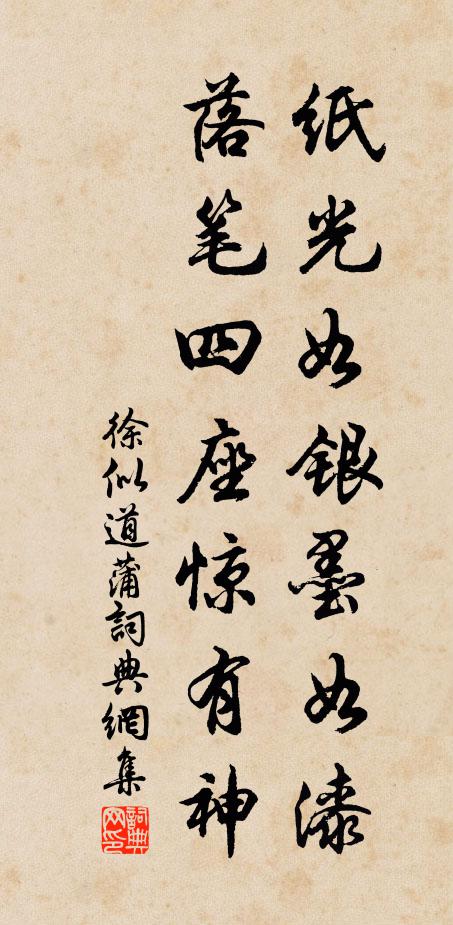 纸光如银墨如漆
落笔四座惊有神
徐似道蒲詞典網集
詞典网印